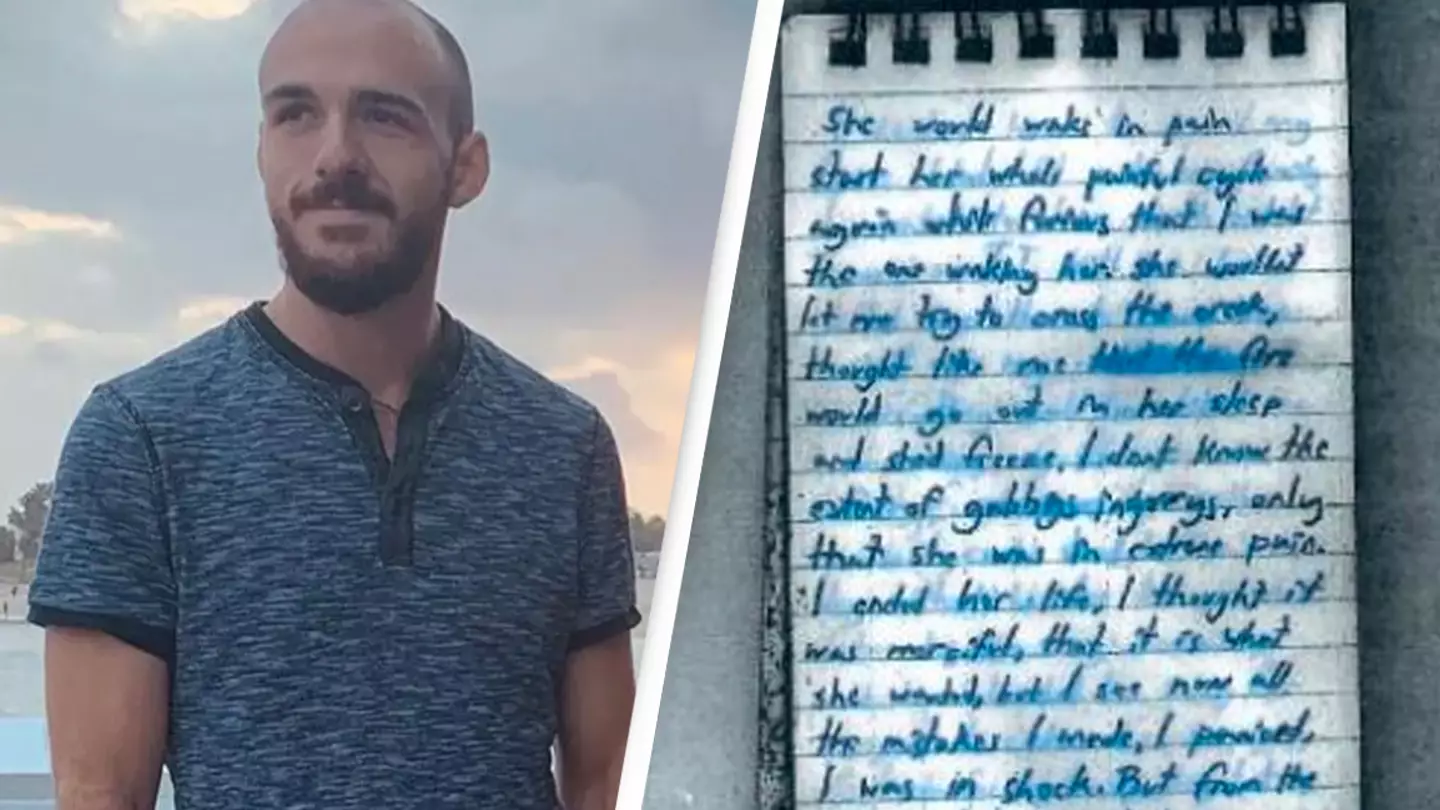 She would wake in pain
start her whole painful cycle
again while furious that I was
the one waking her. she wouldnt
let me try to cross the creek,
thought like me the fire
would go out in her sleep
and she'd freeze. I dont know the
extent of gabbys injureys, only
that she was in extreme pain.
I ended her life, I thought it
was merciful, that it is what
she wanted, but I see now all
the mistakes I made. I panicked,
I was in shock. But from the